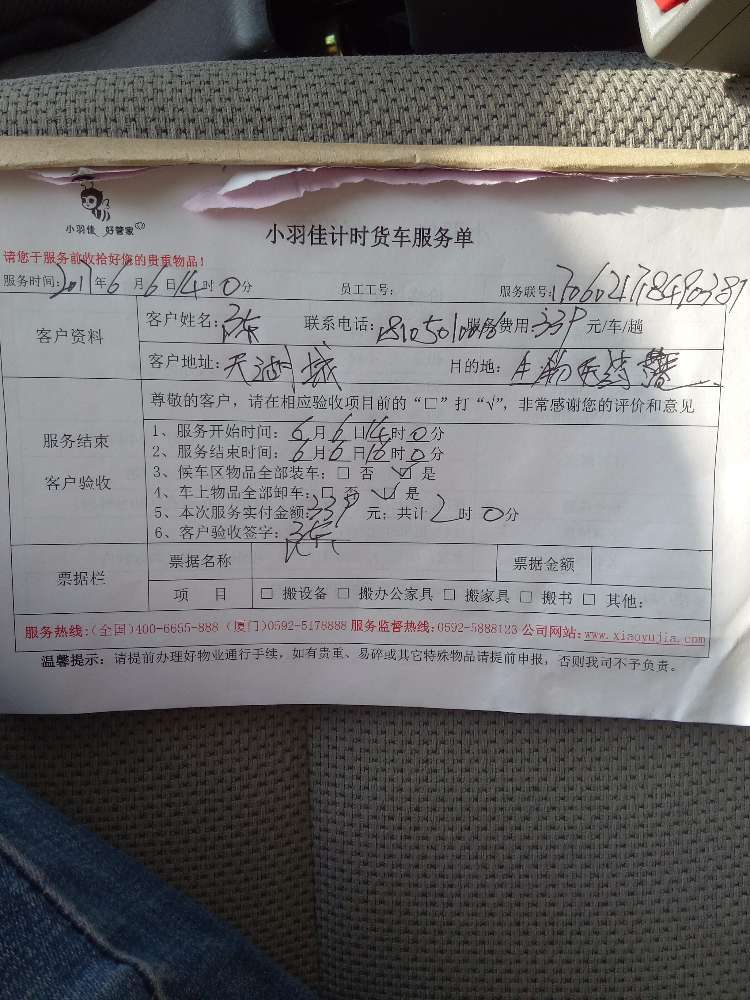 小羽佳 好管家
小羽佳计时货车服务单
请您于服务前收拾好您的贵重物品!
服务时间:2017年6月6日14时0分 员工工号: 服务联号:
客户资料 客户姓名:陈 联系电话: 服务费用:339元/车/趟
客户地址:天湖城 目的地:生物医药
尊敬的客户,请在相应验收项目前的“□”打“√”,非常感谢您的评价和意见
服务结束 客户验收
1、服务开始时间:6月6日14时0分
2、服务结束时间:6月6日16时0分
3、候车区物品全部装车:□ 否 ☑ 是
4、车上物品全部卸车:□ 否 ☑ 是
5、本次服务实付金额:339元;共计2时0分
6、客户验收签字:陈
票据栏 票据名称 票据金额
项 目 □ 搬设备 □ 搬办公家具 □ 搬家具 □ 搬书 □ 其他:
服务热线:(全国)400-6655-888 (厦门)0592-5178888 服务监督热线:0592-5888123 公司网站:www.xiaoyujia.com
温馨提示:请提前办理好物业通行手续,如有贵重、易碎或其它特殊物品请提前申报,否则我司不予负责。